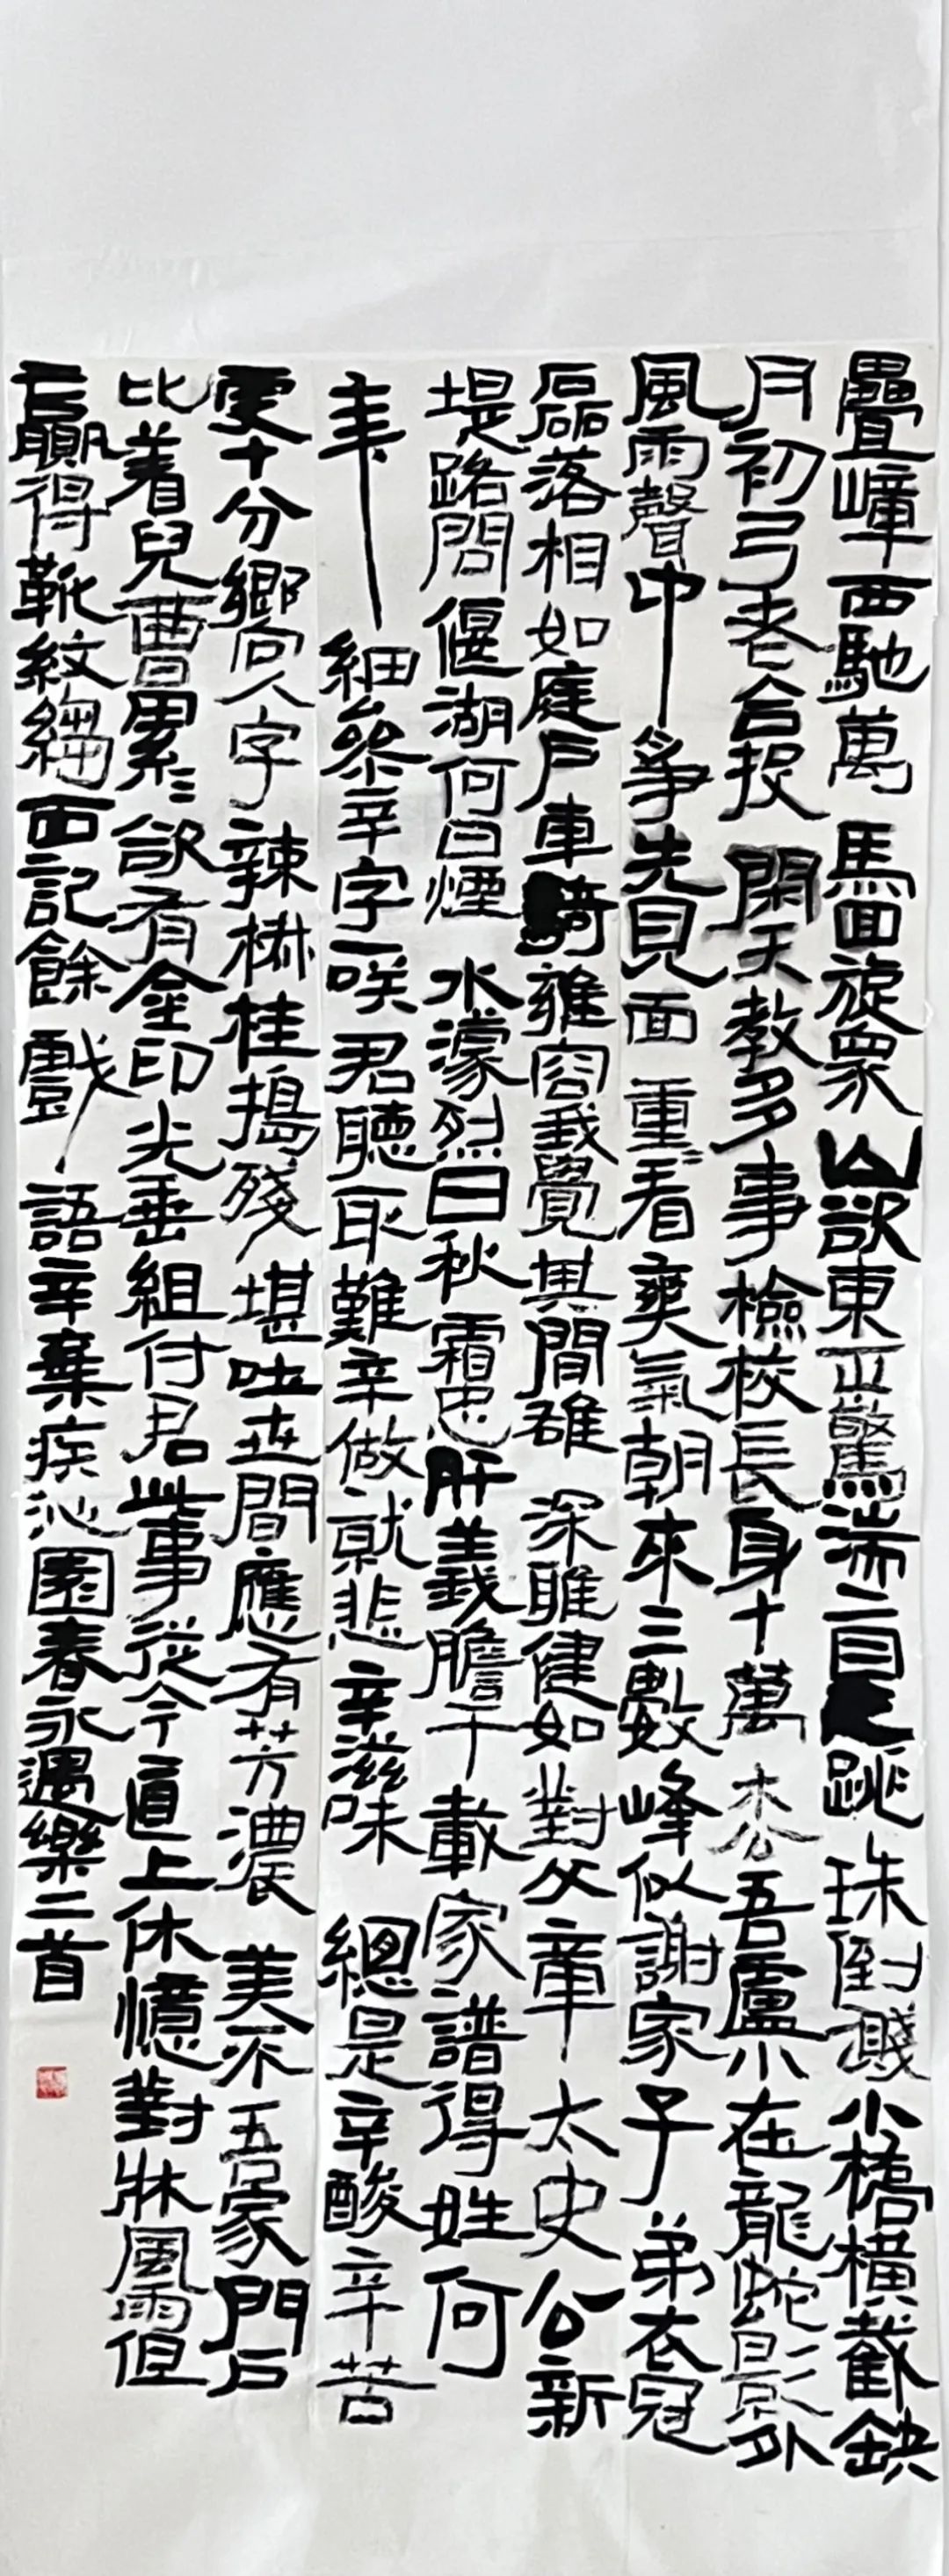 疊嶂西馳萬馬回旋眾山欲東正驚湍跳珠倒濺小橋橫截缺
月初弓老合投閑天教多事檢校長身十萬松吾廬小在龍蛇影外
風雨聲中爭先見面重看爽氣朝來三數峰似謝家子弟衣冠
磊落相如庭戶車騎雍容我覺其間雄深雅健如對文章太史公新
堤路問偃湖何日煙水濛烈日秋霜忠肝義膽千載家譜得姓何
年細參辛字一咲君聽取難辛做就悲辛滋味總是辛酸辛苦
更十分嚮人字辣椒桂搗殘堪吐世間應有芳濃美不吾家門戶
比着兒曹累々欲有金印光垂組付君此事從今直上休憶對牀風雨但
贏得靴紋縐面記餘戲語辛棄疾沁園春永遇樂二首